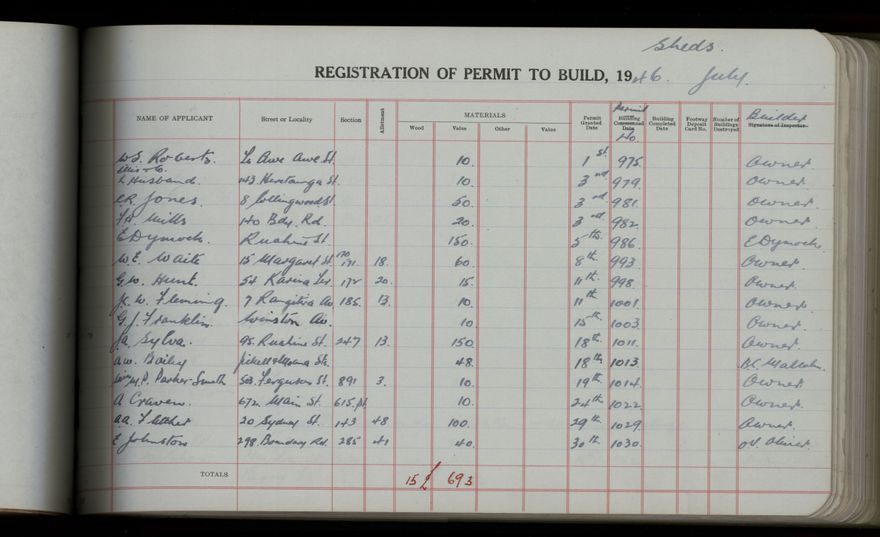 Sheds.
REGISTRATION OF PERMIT TO BUILD, 1946. July.
NAME OF APPLICANT Street or Locality Section Allotment MATERIALS Wood Value Other Value Permit Granted Date Permit Building Commenced Date No. Building Completed Date Footway Deposit Card No. Number of Buildings Destroyed Builder Signature of Inspector
W.S. Roberts. Awe Awe St. 10. 1st 975. Owner
L Husband. 143 Heretaunga St. 10. 3rd 979. Owner.
Jones. 8 Collingwood St. 50. 3rd 981. Owner.
Mills 140 Bdy. Rd. 20. 3rd 982. Owner
E Dymock. Ruahine St. 150. 5th 986. E Dymock.
W.E. Waite 15 Margaret St. 170 171 18. 60. 8th 993. Owner.
G.W. Hunt. 54 Karina Ter. 172 20. 15. 11th 998. Owner.
W. Fleming. 7 Rangitira Av 186. 13. 10. 11th 1001. Owner.
G.J. Franklin. Winston Av. 10. 15th 1003. Owner.
J.A. Sylva. 95. Ruahine St. 247 13. 150. 18th 1011. Owner.
A.W. Bailey Sts. 48. 18th 1013.
P. Parker-Smith 503. Ferguson St. 891 3. 10. 19th 1014. Owner
A Craven. 672. Main St. 615.pt. 10. 24th 1022. Owner.
A.A. 20 Sydney St. 143 48 100. 29th 1029. Owner.
E Johnston 298. Boundary Rd. 285 41 40. 30th 1030. O.V. Oliver.
TOTALS 15 £ 693